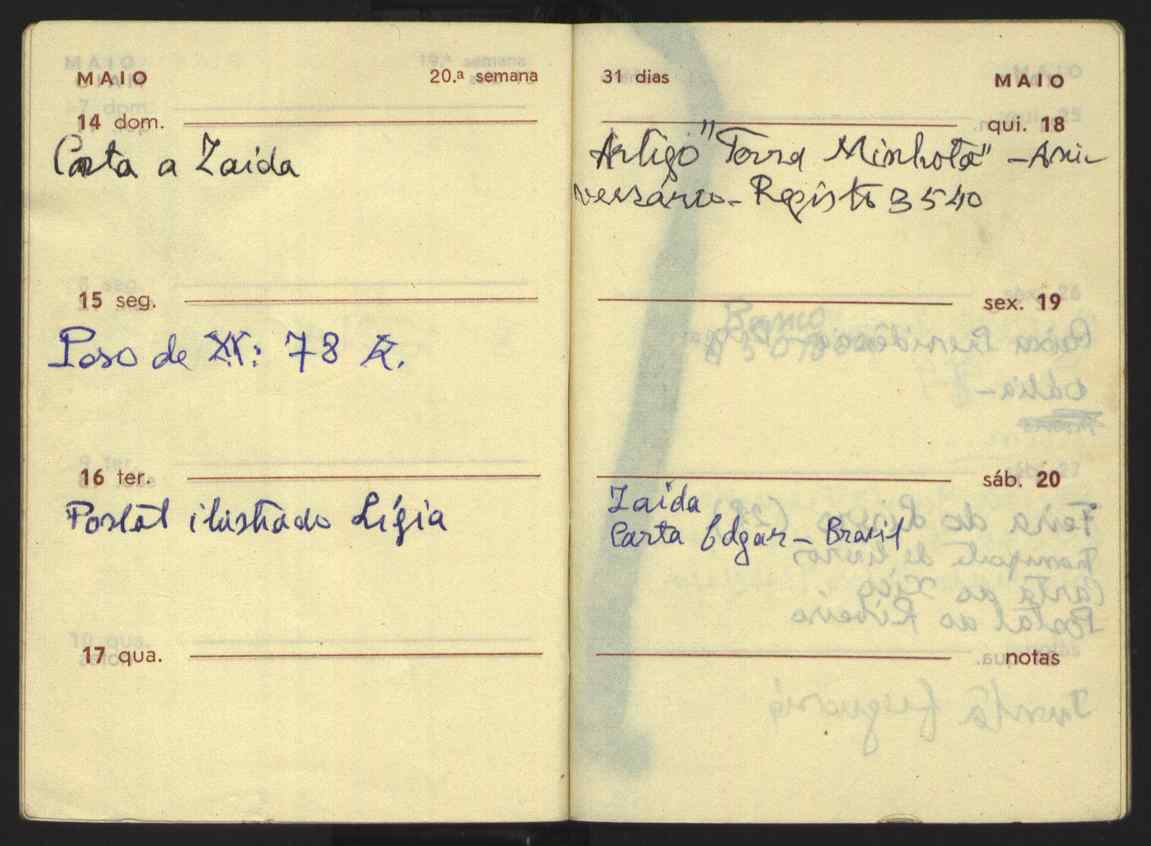 MAIO 20.ª semana
14 dom.
Carta a Zaida
15 seg.
Peso de XX: 78 K.
16 ter.
Postal ilustrado Lígia
17 qua.
31 dias MAIO
qui. 18
Artigo "Terra Minhota" - Ani-
versário - Registo 3540
sex. 19
sáb. 20
Zaida
Carta Edgar - Brasil
notas